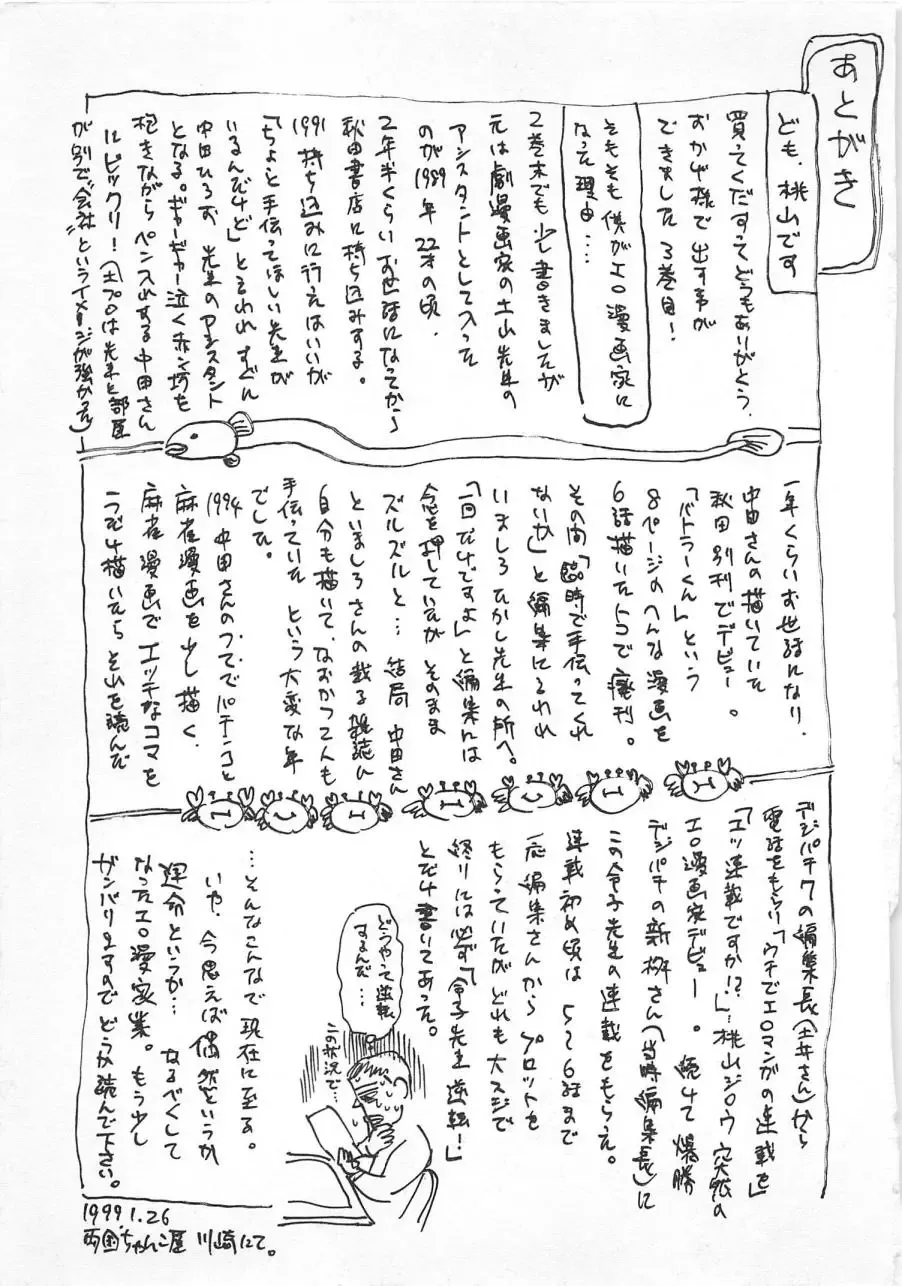 あとがき
ども、桃山です
買ってくだすってどうもありがとう。
おかげ様で出す事が
できました3巻目!
そもそも僕がエロ漫画家に
なった理由…
2巻末でも少し書きましたが
元は劇漫画家の土山先生の
アシスタントとして入った
のが1989年 22才の頃.
2年半くらいお世話になってから
秋田書店に持ち込みする。
1991 持ち込みに行くはいいが
「ちょっと手伝ってほしい先生が
いるんだけど」と言われすぐに
中田ひろお 先生のアシスタント
となる。ギャーギャー泣く赤ン坊を
抱きながらペン入れする中田さん
にビックリ!(土プロは先生と部屋
が別で“会社”というイメージが強かった)
一年くらいお世話になり
中田さんの描いていた
秋田 別刊でデビュー。
「バトラーくん」という
8ページのへんな漫画を
6話描いたトコで廃刊。
その間「臨時で手伝ってくれ
ないか」と編集に言われ
いましろたかし先生の所へ。
「一回だけですよ」と編集には
念を押していたが そのまま
ズルズルと… 結局 中田さん
といましろさんの載る雑誌に
自分も描いて、なおかつ2人も
手伝っていた という大変な年
でした。
1994 中田さんのツテでパチンコと
麻雀漫画を少し描く.
麻雀漫画でエッチなコマを
1つだけ描いたら それを読んだ
デジパチ7の編集長(土井さん)から
電話をもらい「ウチでエロマンガの連載を」
「エッ連載ですか!?」… 桃山ジロウ 突然の
エロ漫画家デビュー。 続けて 爆勝
デジパチの新桝さん(当時編集長)に
この令子先生の連載をもらった。
連載初め頃は 5〜6話まで
一応編集さんからプロットを
もらっていたがどれも大スジで
終りには必ず「令子先生逆転!」
とだけ書いてあった。
どうやって逆転
するんだ…
この状況で…
…そんなこんなで現在に至る。
いや、今思えば偶然というか
運命というか… なるべくして
なったエロ漫家業。もう少し
ガンバリますので どうか読んで下さい。
1999.1.26
両国ちゃんこ屋 川崎にて。